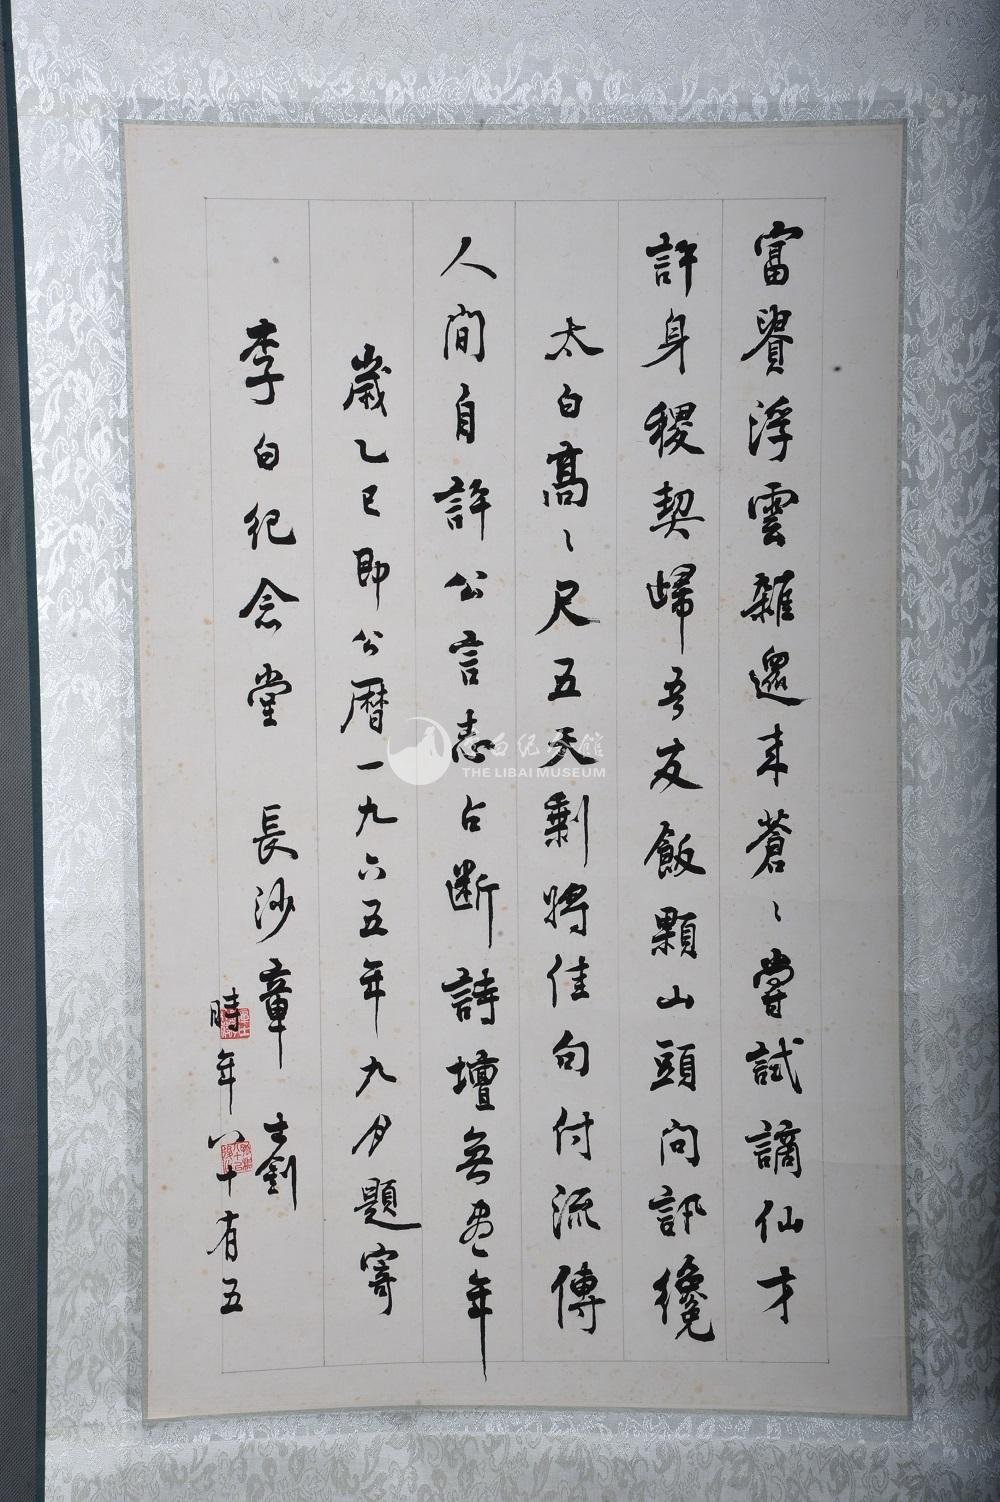 富貴浮雲雜遝来蒼〻嘗試謫仙才
許身稷契歸吾友飯顆山頭問訊纔
太白高〻尺五天剩將佳句付流傳
人間自許公言志占斷詩壇無盡年
歲乙巳即公曆一九六五年九月題寄
李白纪念堂 長沙章士釗
時年八十有五
李白纪念馆
THE LIBAI MUSEUM